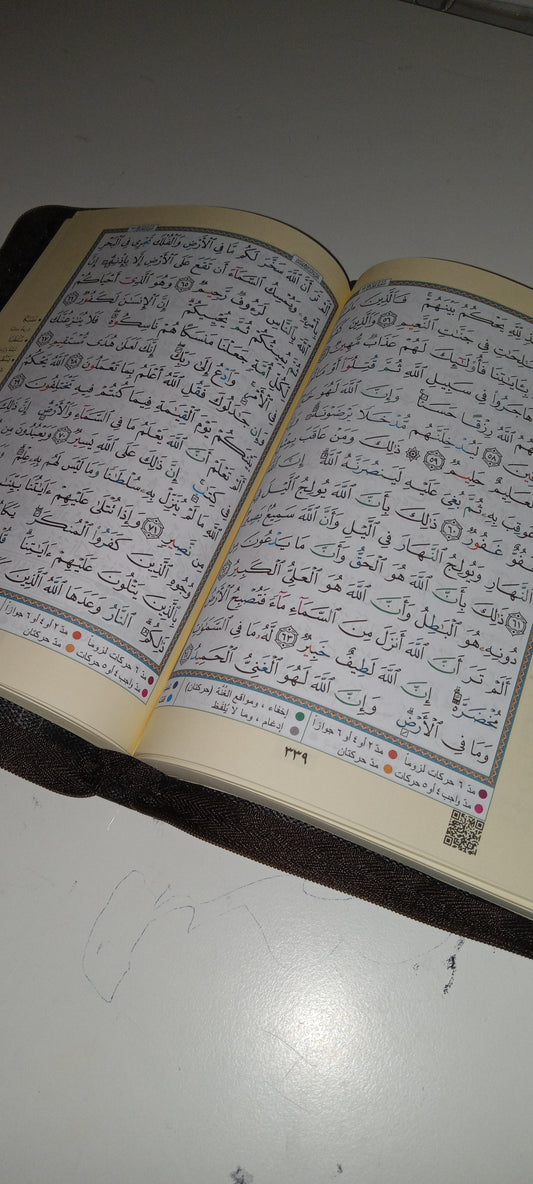 لِّلَّهِ يَحْكُمُ بَيْنَهُمْ فَٱلَّذِينَ
فِى جَنَّٰتِ ٱلنَّعِيمِ ٥٦ وَٱلَّذِينَ
بِـَٔايَٰتِنَا فَأُو۟لَٰٓئِكَ لَهُمْ عَذَابٌ مُّهِينٌ
هَاجَرُوا۟ فِى سَبِيلِ ٱللَّهِ ثُمَّ قُتِلُوٓا۟ أَوْ
ٱللَّهُ رِزْقًا حَسَنًا وَإِنَّ ٱللَّهَ لَهُوَ
٥٨ لَيُدْخِلَنَّهُم مُّدْخَلًا يَرْضَوْنَهُۥ
حَلِيمٌ ٥٩ ۞ ذَٰلِكَ وَمَنْ عَاقَبَ
عُوقِبَ بِهِۦ ثُمَّ بُغِىَ عَلَيْهِ لَيَنصُرَنَّهُ ٱللَّهُ إِنَّ
غَفُورٌ ٦٠ ذَٰلِكَ بِأَنَّ ٱللَّهَ يُولِجُ ٱلَّيْلَ
ٱلنَّهَارِ وَيُولِجُ ٱلنَّهَارَ فِى ٱلَّيْلِ وَأَنَّ ٱللَّهَ سَمِيعٌۢ
٦١ ذَٰلِكَ بِأَنَّ ٱللَّهَ هُوَ ٱلْحَقُّ وَأَنَّ مَا يَدْعُونَ
دُونِهِۦ هُوَ ٱلْبَٰطِلُ وَأَنَّ ٱللَّهَ هُوَ ٱلْعَلِىُّ ٱلْكَبِيرُ
أَلَمْ تَرَ أَنَّ ٱللَّهَ أَنزَلَ مِنَ ٱلسَّمَآءِ مَآءً فَتُصْبِحُ
مُخْضَرَّةً إِنَّ ٱللَّهَ لَطِيفٌ خَبِيرٌ ٦٣ لَّهُۥ مَا فِى
وَمَا فِى ٱلْأَرْضِ وَإِنَّ ٱللَّهَ لَهُوَ ٱلْغَنِىُّ ٱلْحَمِيدُ
مدّ ٦ حركات لزوماً مدّ ٢ أو ٤ أو ٦ جوازاً إخفاء ، ومواقع الغُنّة (حركتان)
مدّ واجب ٤ أو ٥ حركات مدّ حركتان إدغام ، وما لا يُلفَظ
٣٣٩
أَلَمْ تَرَ أَنَّ ٱللَّهَ سَخَّرَ لَكُم مَّا فِى ٱلْأَرْضِ وَٱلْفُلْكَ تَجْرِى فِى ٱلْبَحْرِ
بِأَمْرِهِۦ وَيُمْسِكُ ٱلسَّمَآءَ أَن تَقَعَ عَلَى ٱلْأَرْضِ إِلَّا بِإِذْنِهِۦٓ إِنَّ
ٱللَّهَ بِٱلنَّاسِ لَرَءُوفٌ رَّحِيمٌ ٦٥ وَهُوَ ٱلَّذِىٓ أَحْيَاكُمْ
ثُمَّ يُمِيتُكُمْ ثُمَّ يُحْيِيكُمْ إِنَّ ٱلْإِنسَٰنَ لَكَفُورٌ ٦٦
لِّكُلِّ أُمَّةٍ جَعَلْنَا مَنسَكًا هُمْ نَاسِكُوهُ فَلَا يُنَٰزِعُنَّكَ
فِى ٱلْأَمْرِ وَٱدْعُ إِلَىٰ رَبِّكَ إِنَّكَ لَعَلَىٰ هُدًى مُّسْتَقِيمٍ ٦٧
وَإِن جَٰدَلُوكَ فَقُلِ ٱللَّهُ أَعْلَمُ بِمَا تَعْمَلُونَ ٦٨ ٱللَّهُ يَحْكُمُ
بَيْنَكُمْ يَوْمَ ٱلْقِيَٰمَةِ فِيمَا كُنتُمْ فِيهِ تَخْتَلِفُونَ ٦٩
تَعْلَمْ أَنَّ ٱللَّهَ يَعْلَمُ مَا فِى ٱلسَّمَآءِ وَٱلْأَرْضِ إِنَّ ذَٰلِكَ
كِتَٰبٍ إِنَّ ذَٰلِكَ عَلَى ٱللَّهِ يَسِيرٌ ٧٠ وَيَعْبُدُونَ مِن
ٱللَّهِ مَا لَمْ يُنَزِّلْ بِهِۦ سُلْطَٰنًا وَمَا لَيْسَ لَهُم بِهِۦ عِلْمٌ
مِن نَّصِيرٍ ٧١ وَإِذَا تُتْلَىٰ عَلَيْهِمْ ءَايَٰتُنَا
وُجُوهِ ٱلَّذِينَ كَفَرُوا۟ ٱلْمُنكَرَ
بِٱلَّذِينَ يَتْلُونَ عَلَيْهِمْ ءَايَٰتِنَا
ذَٰلِكُمُ ٱلنَّارُ وَعَدَهَا ٱللَّهُ ٱلَّذِينَ
مدّ ٦ حركات لزوماً مدّ ٢ أو ٤ أو ٦ جوازاً
مدّ واجب ٤ أو ٥ حركات مدّ حركتان